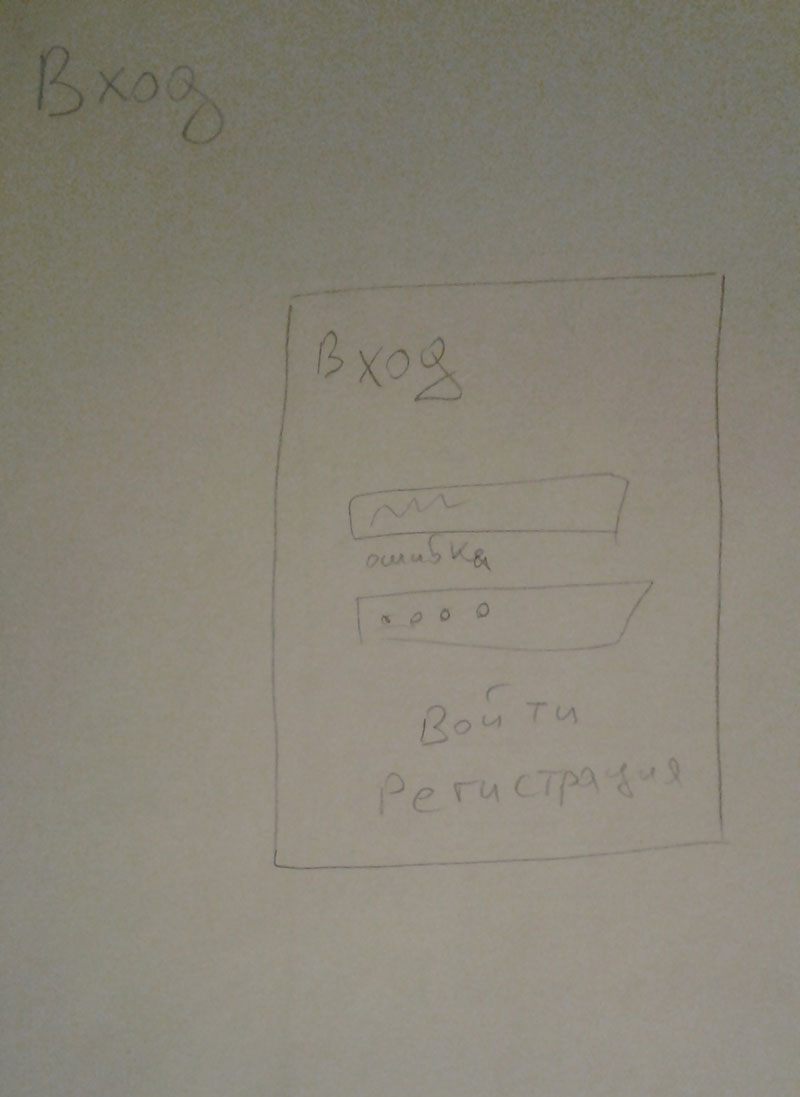 Вход
Вход
ошибка
Войти
Регистрация